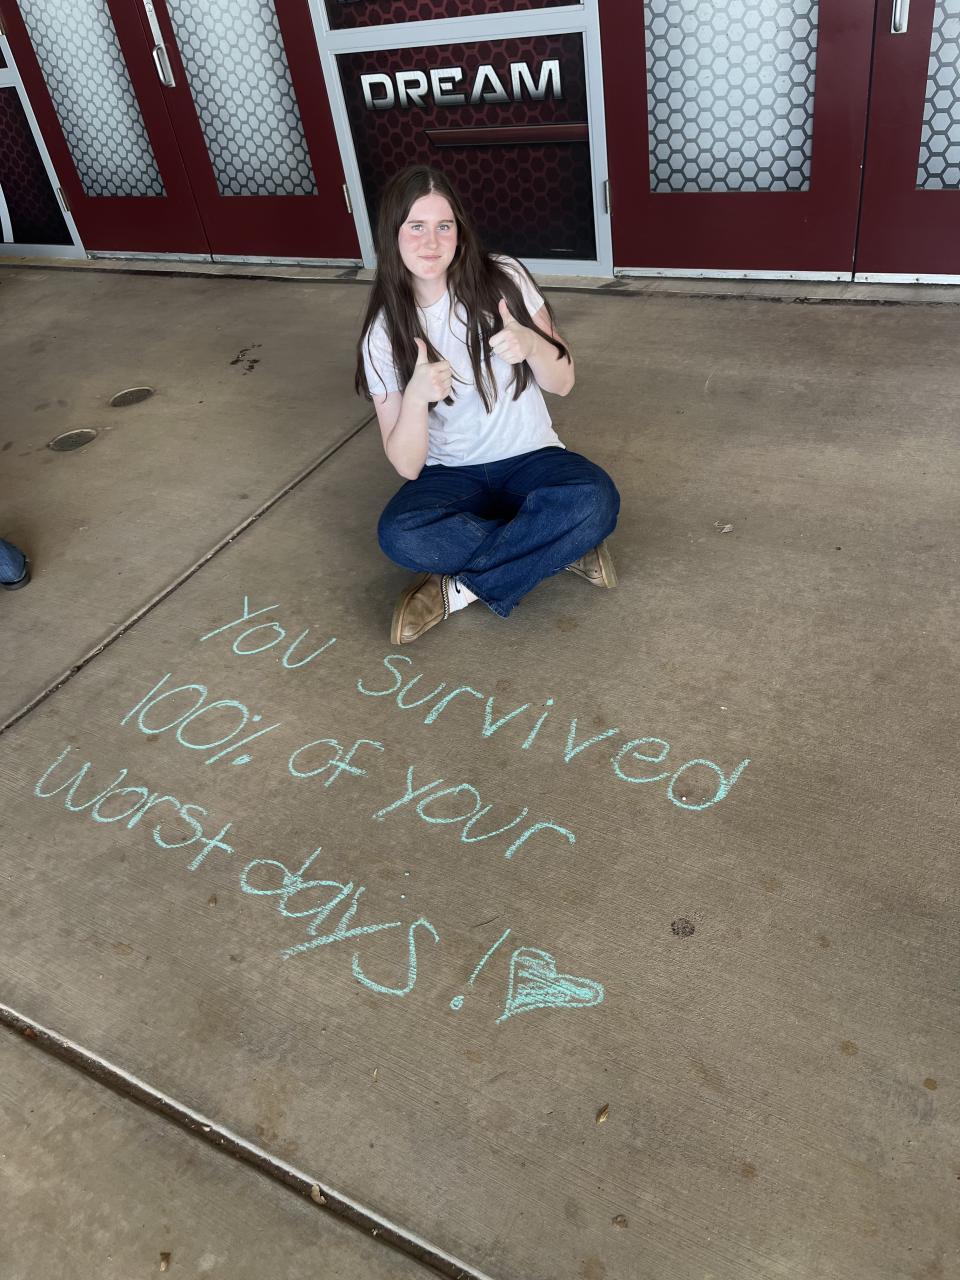 DREAM
You survived
100% of your
worst days!